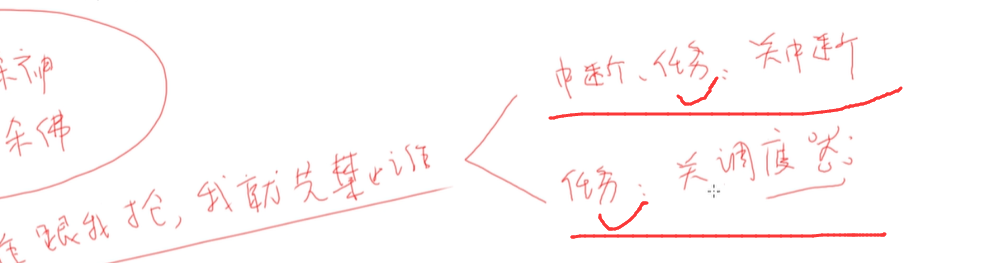 杀神
杀佛
谁跟我抢，我就先禁止谁
中断、任务：关中断
任务：关调度器